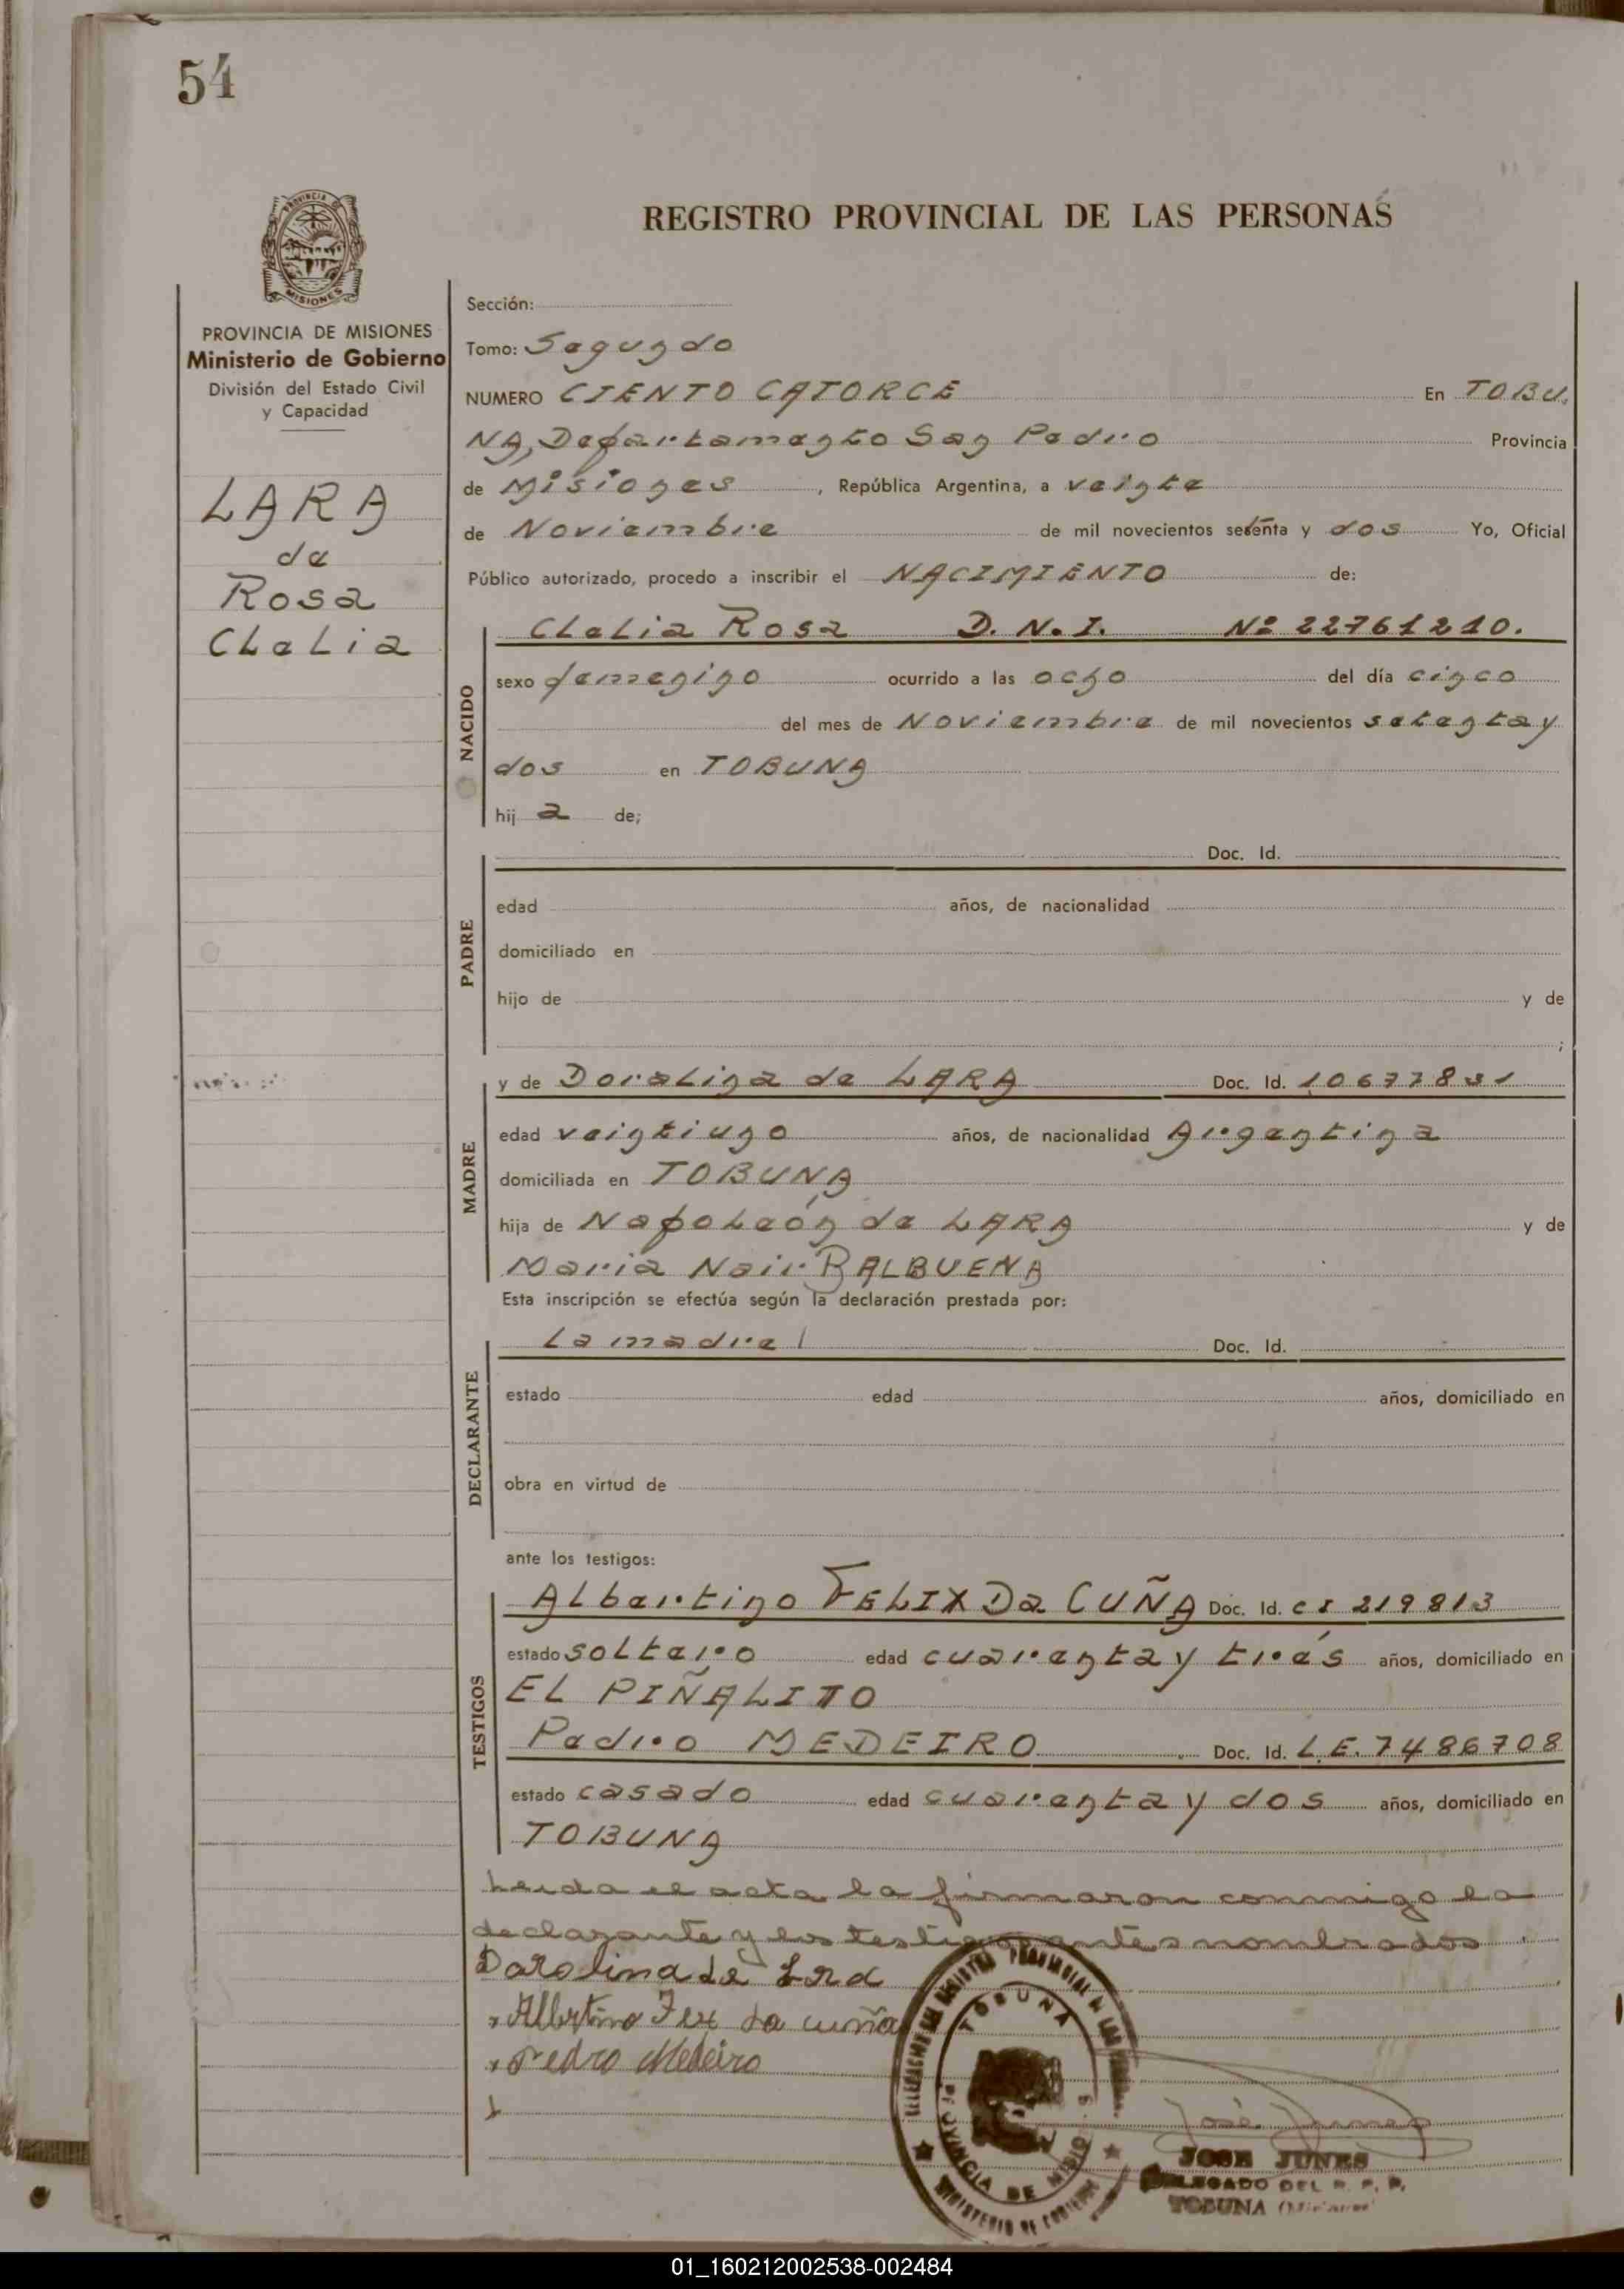 54
PROVINCIA DE
MISIONES
REGISTRO PROVINCIAL DE LAS PERSONAS
PROVINCIA DE MISIONES
Ministerio de Gobierno
División del Estado Civil
y Capacidad
LARA
de
Rosa
Clelia
Sección:
Tomo: Segundo
NUMERO CIENTO CATORCE En TOBU.
NA, Departamento San Pedro Provincia
de Misiones, República Argentina, a veinte
de Noviembre de mil novecientos setenta y dos Yo, Oficial
Público autorizado, procedo a inscribir el NACIMIENTO de:
NACIDO
Clelia Rosa D. N. I. Nº 22761210.
sexo femenino ocurrido a las ocho del día cinco
del mes de Noviembre de mil novecientos setenta y
dos en TOBUNA
hij a de;
PADRE
Doc. Id.
edad años, de nacionalidad
domiciliado en
hijo de y de
;
MADRE
y de Doralina de LARA Doc. Id. 10677831
edad veintiuno años, de nacionalidad Argentina
domiciliada en TOBUNA
hija de Napoleón de LARA y de
Maria Nair BALBUENA
Esta inscripción se efectúa según la declaración prestada por:
DECLARANTE
La madre Doc. Id.
estado edad años, domiciliado en
obra en virtud de
ante los testigos:
TESTIGOS
Albertino FELIX Da CUÑA Doc. Id. CI 219813
estado soltero edad cuarenta y trés años, domiciliado en
EL PIÑALITO
Pedro MEDEIRO Doc. Id. L.E. 7486708
estado casado edad cuarenta y dos años, domiciliado en
TOBUNA
Leida el acta la firmaron conmigo la
declarante y los testigos antes nombrados
Darolina de Lra
Albrtino Fex da cuña
Pedro Medeiro
TOBUNA
José Junes
JOSE JUNES
DELEGADO DEL R. P. P.
TOBUNA (Misiones)
01_160212002538-002484